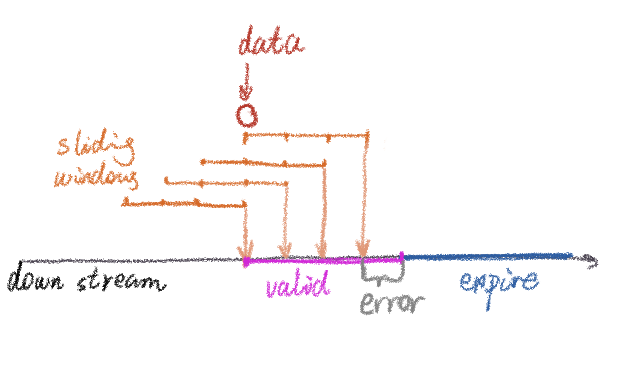 data
sliding
windows
down stream
valid
error
empire